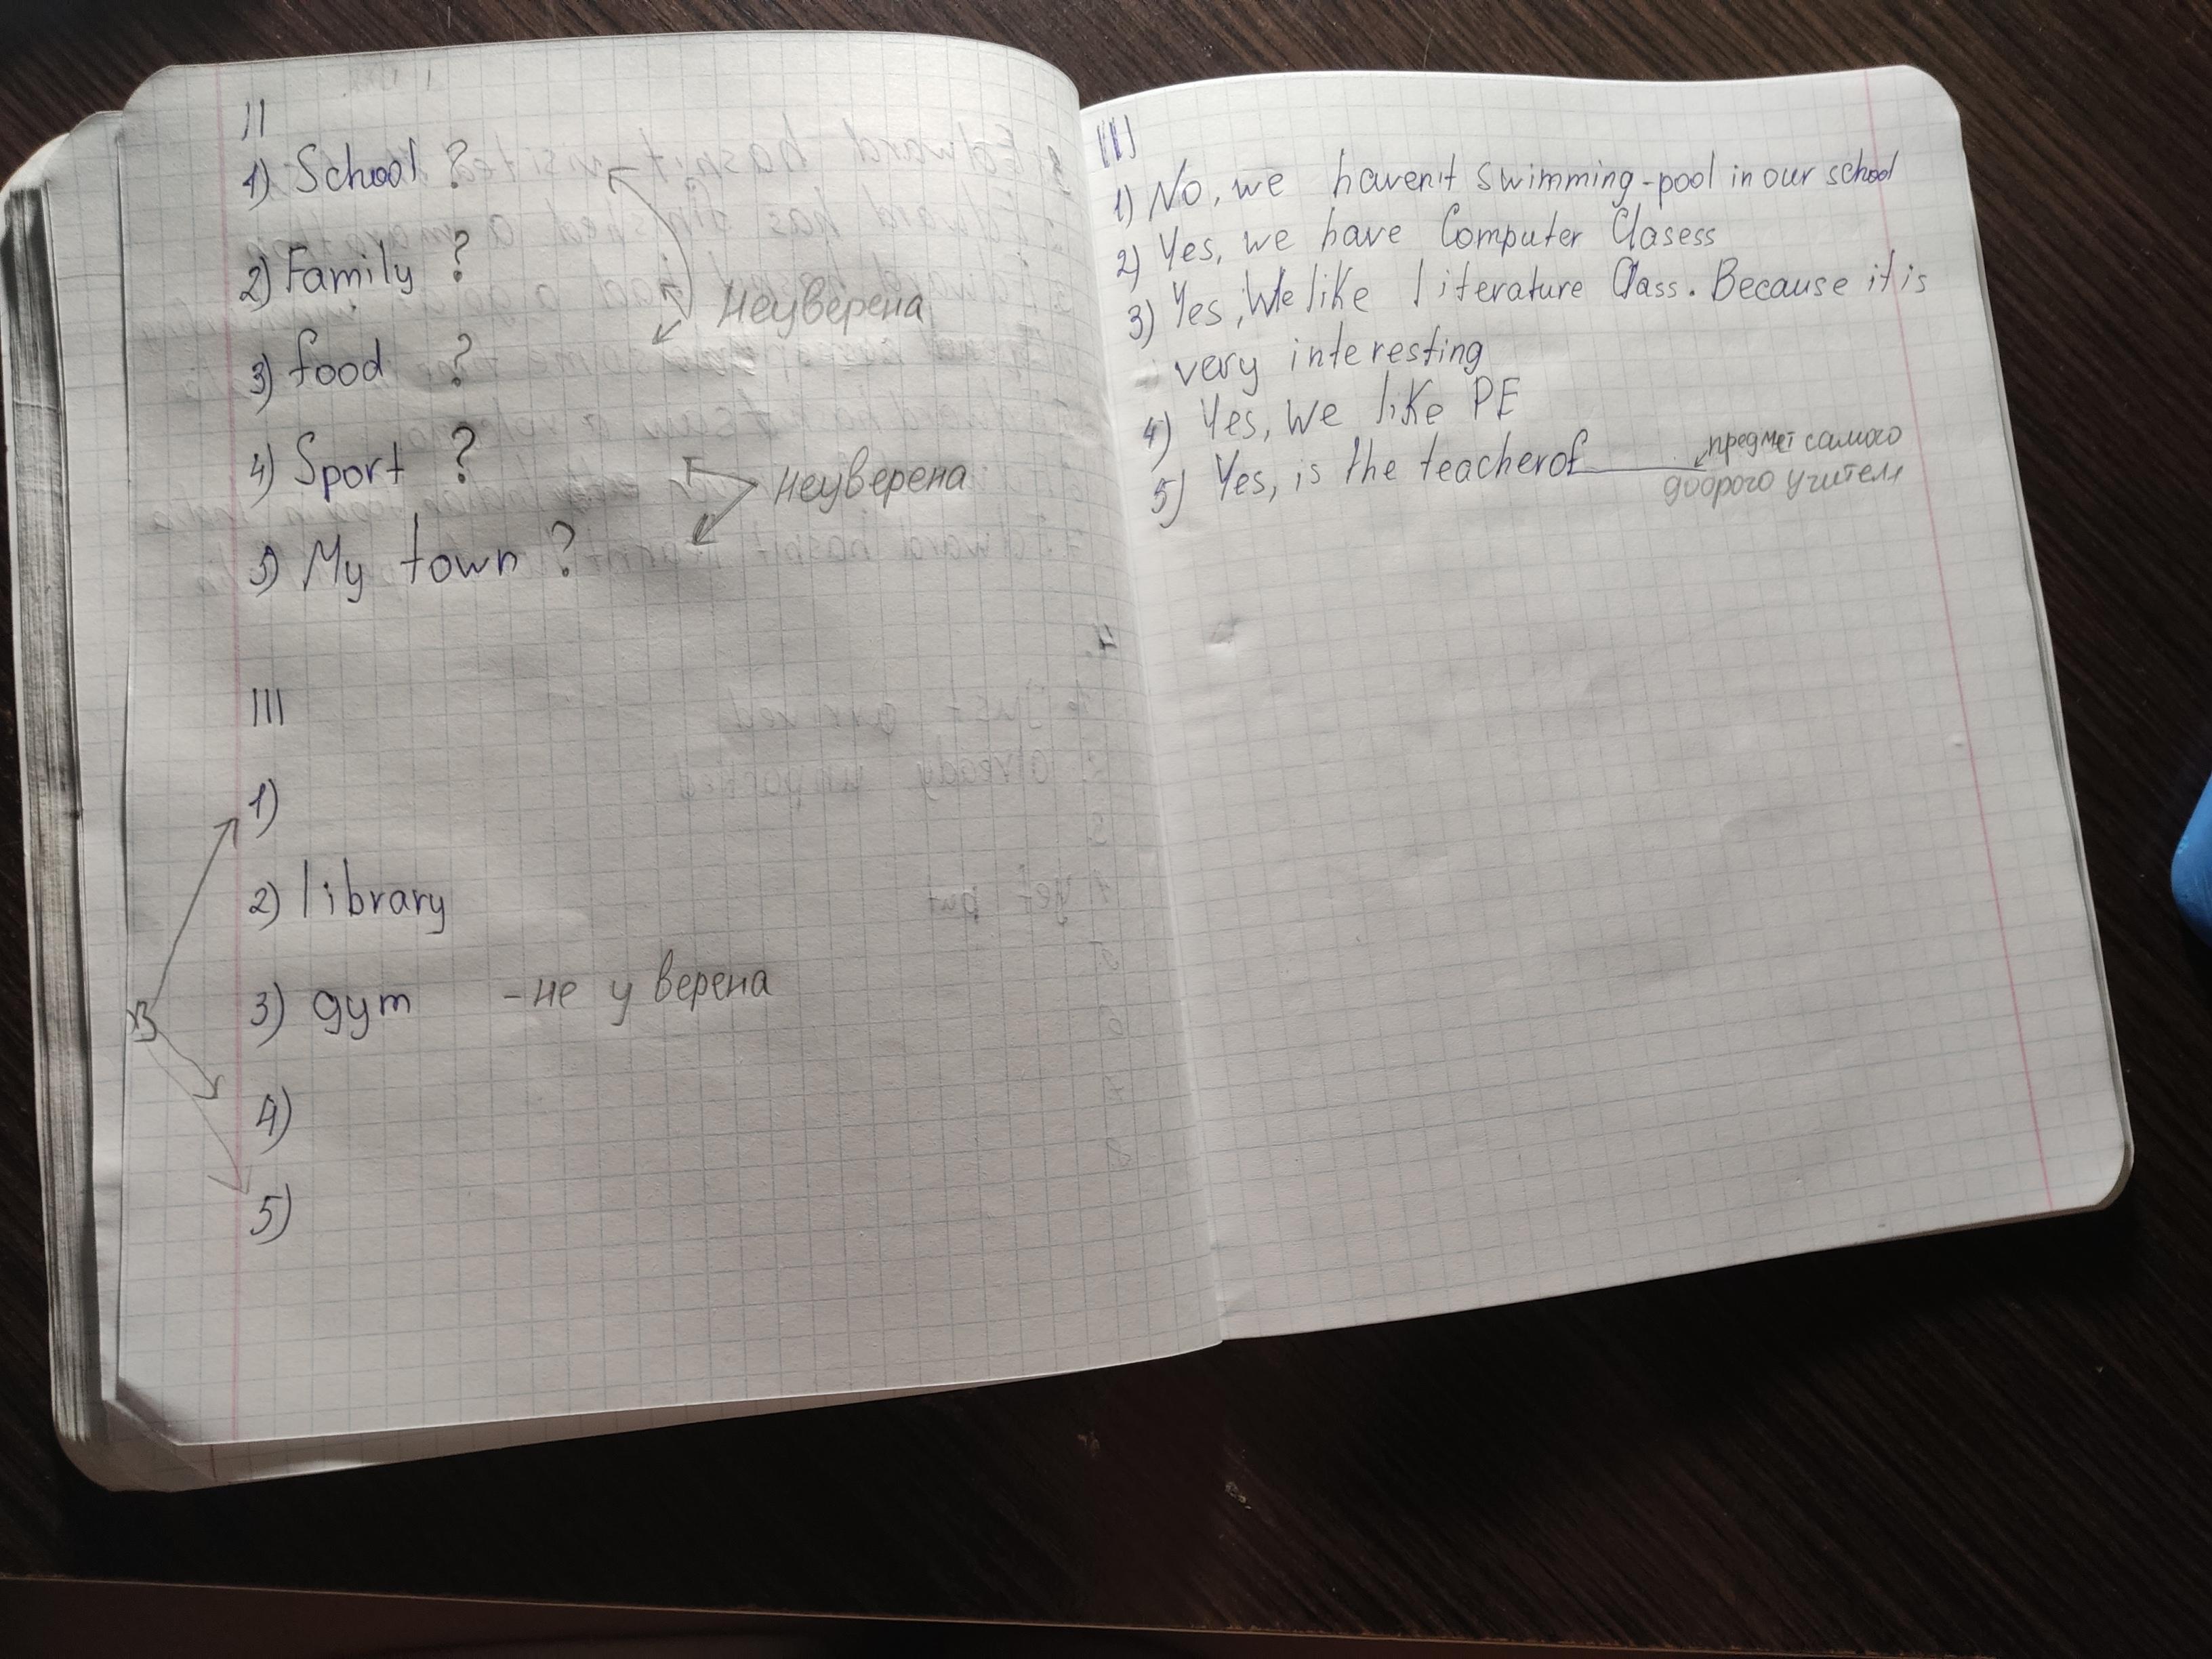 II
1) School ?
2) Family ?
3) food ?
Неуверена
4) Sport ?
Неуверена
5) My town ?
III
1)
2) library
3) gym - не уверена
4)
5)
III
1) No, we haven't swimming-pool in our school
2) Yes, we have Computer Clasess
3) Yes, We like literature Class. Because it is
very interesting
4) Yes, we like PE
5) Yes, is the teacher of
предмет самого
доброго учителя